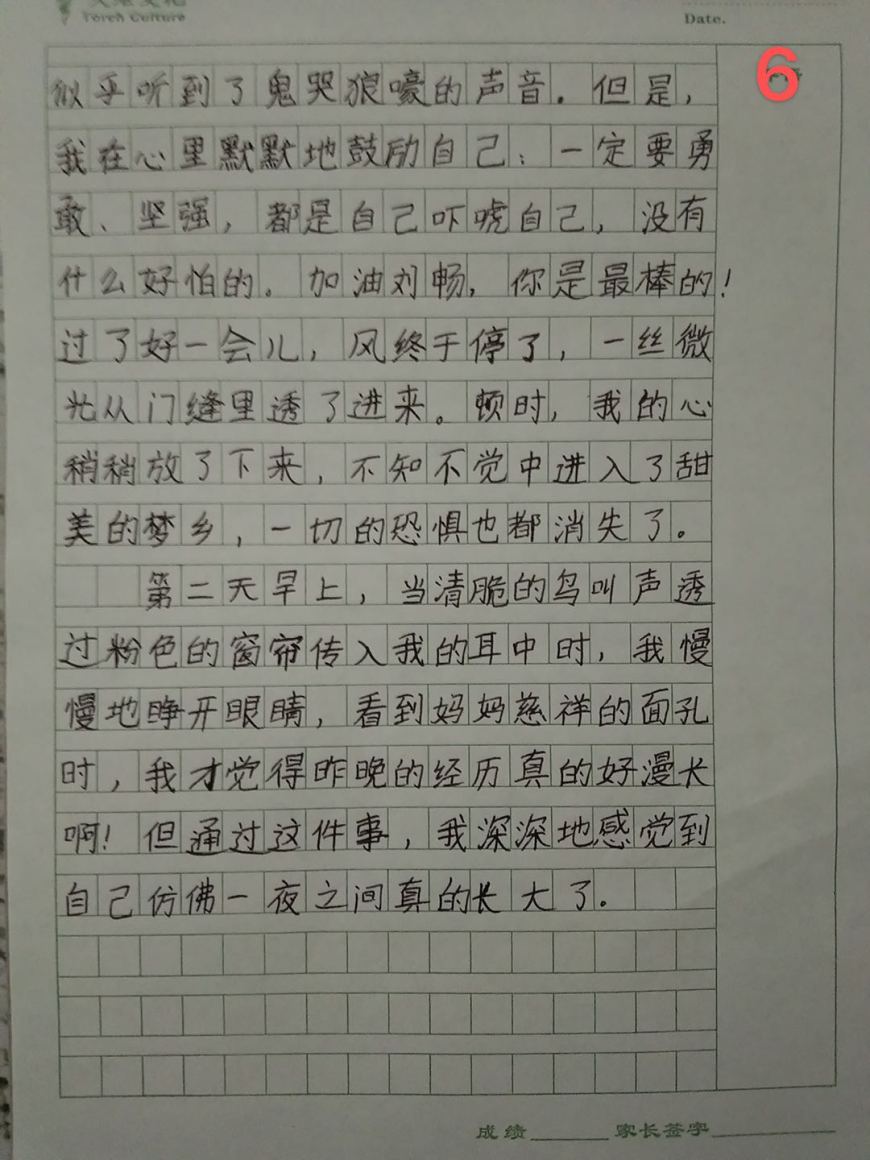 Torch Culture
Date.
6
似乎听到了鬼哭狼嚎的声音。但是，
我在心里默默地鼓励自己：一定要勇
敢、坚强，都是自己吓唬自己，没有
什么好怕的。加油刘畅，你是最棒的！
过了好一会儿，风终于停了，一丝微
光从门缝里透了进来。顿时，我的心
稍稍放了下来，不知不觉中进入了甜
美的梦乡，一切的恐惧也都消失了。
第二天早上，当清脆的鸟叫声透
过粉色的窗帘传入我的耳中时，我慢
慢地睁开眼睛，看到妈妈慈祥的面孔
时，我才觉得昨晚的经历真的好漫长
啊！但通过这件事，我深深地感觉到
自己仿佛一夜之间真的长大了。
成绩 家长签字